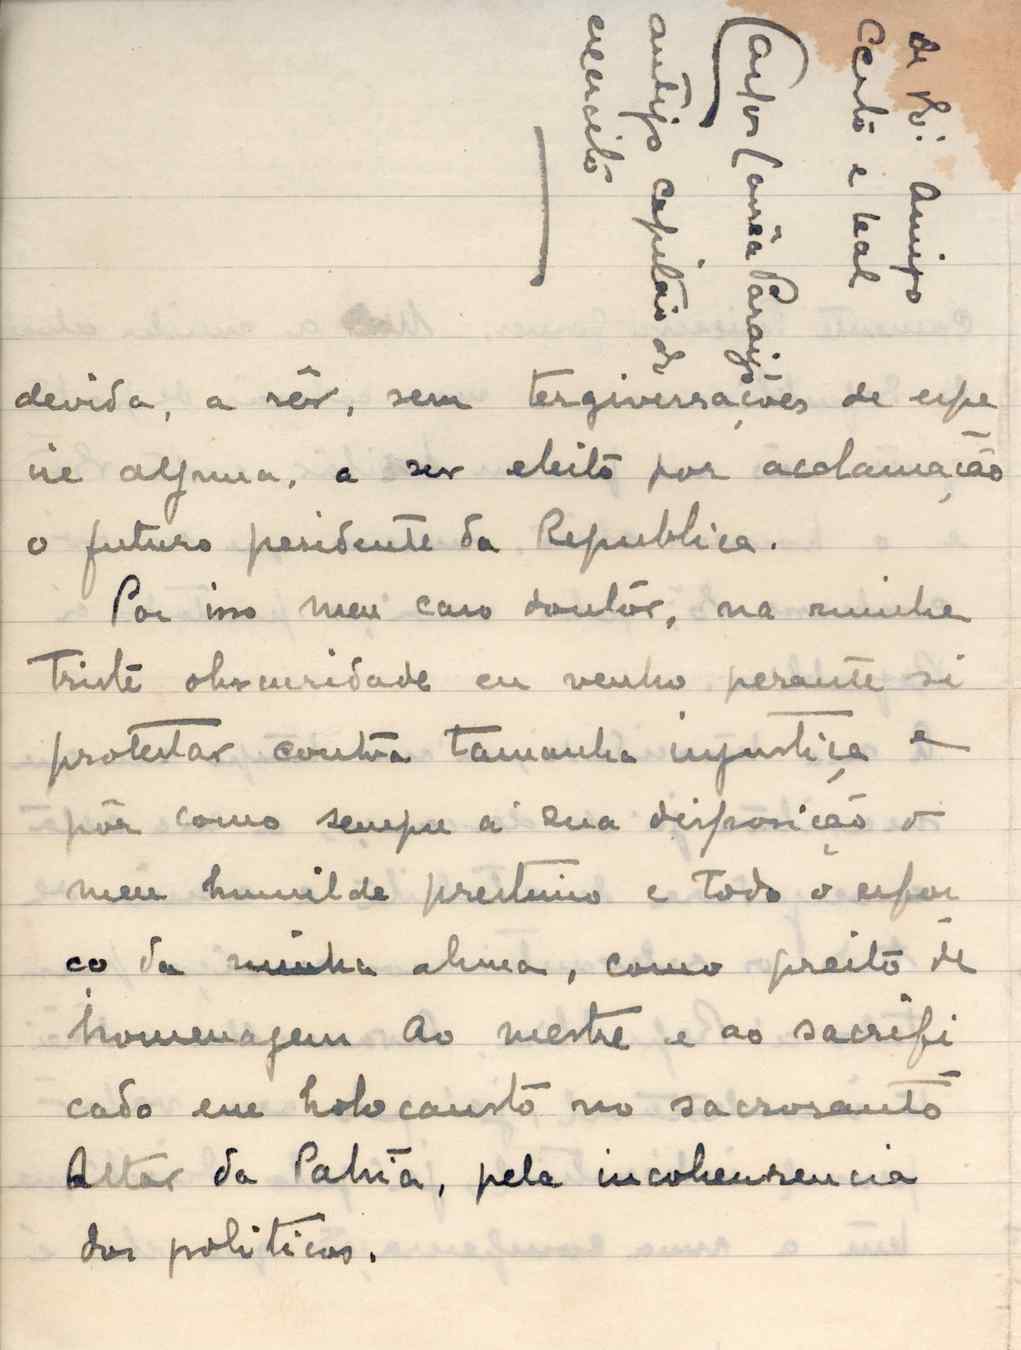 devida, a sêr, sem tergiversações de espe
cie alguma, a ser eleito por acclamação
o futuro pesidente da Republica.
Por isso meu caro doutôr, na minha
triste obscuridade eu venho perante si
protestar contra tamanha injustiça e
pôr como sempre a sua disposição o
meu humilde prestimo e todo o esfor
ço da minha alma, como preito de
homenagem ao mestre e ao sacrifi
cado em holocausto no sacrosanto
Altar da Patria, pela incohenrencia
dos politicos.
Amigo
Certo e Leal
Carlos Corrêa
antigo capitão do
exercito